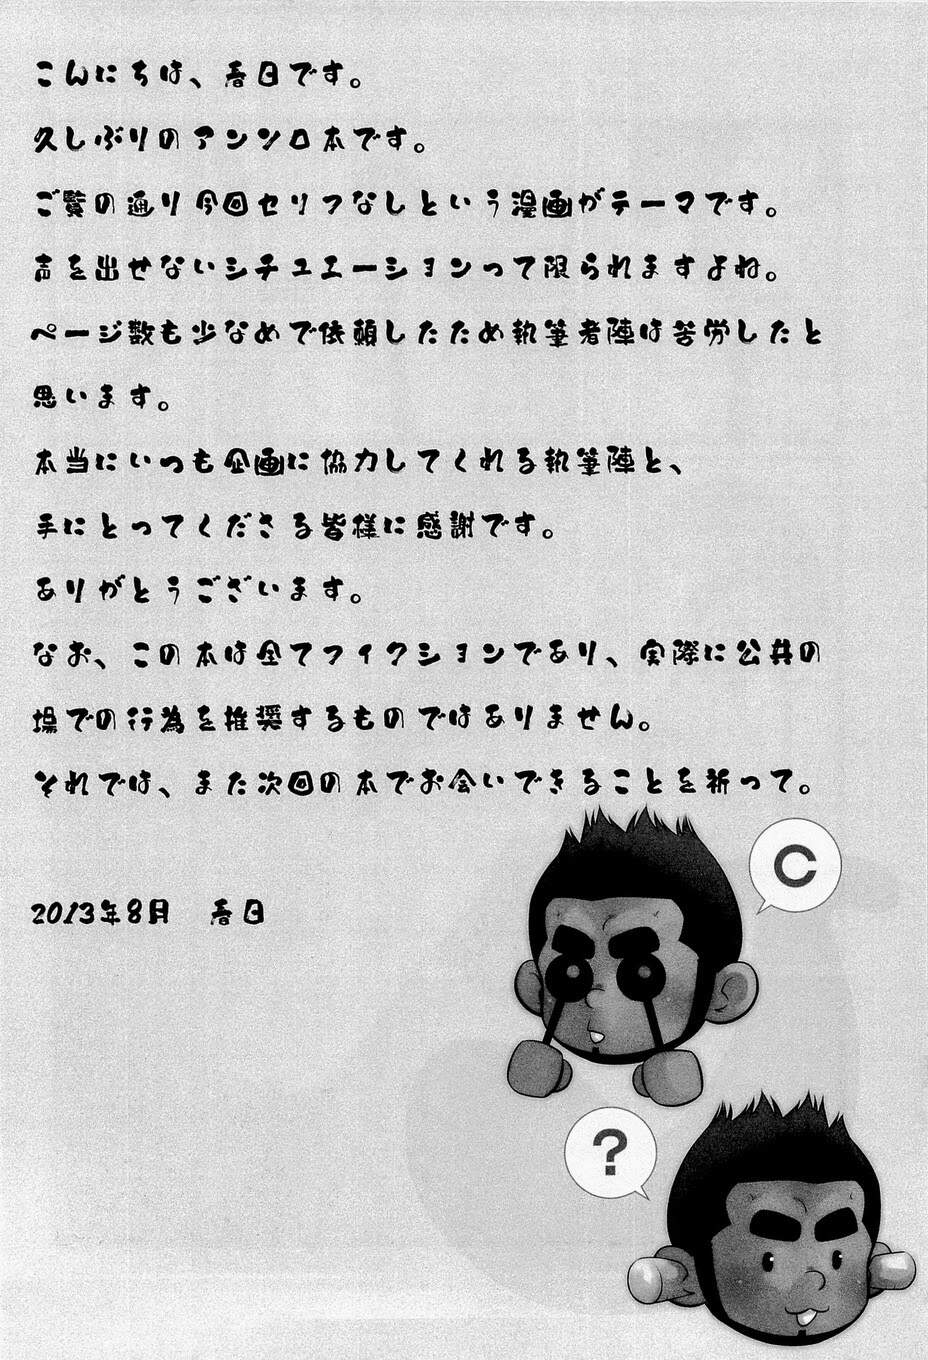 こんにちは、春日です。
久しぶりのアンソロ本です。
ご覧の通り今回セリフなしという漫画がテーマです。
声を出せないシチュエーションって限られますよね。
ページ数も少なめで依頼したため執筆者陣は苦労したと
思います。
本当にいつも企画に協力してくれる執筆陣と、
手にとってくださる皆様に感謝です。
ありがとうございます。
なお、この本は全てフィクションであり、実際に公共の
場での行為を推奨するものではありません。
それでは、また次回の本でお会いできることを祈って。
2013年8月 春日
C
?